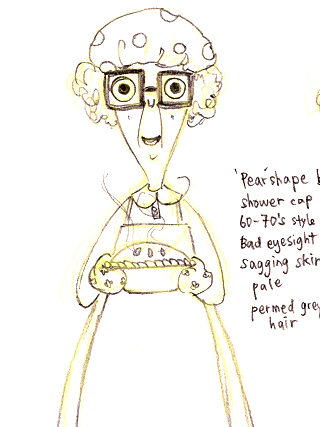 'Pear shape b
shower cap
60-70's style
Bad eyesight
sagging skin
pale
permed grey
hair